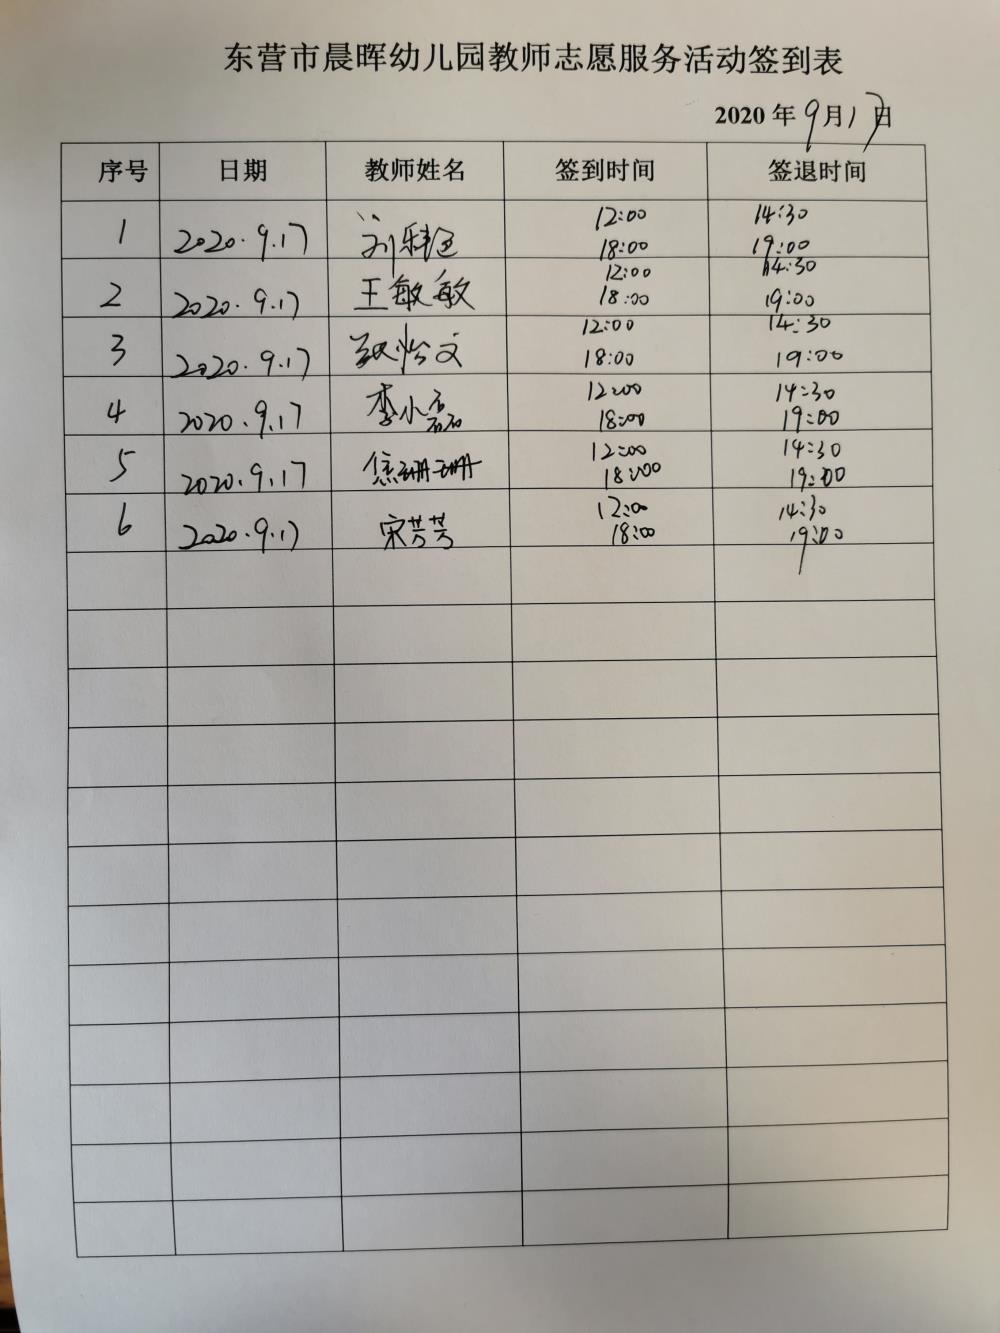 东营市晨晖幼儿园教师志愿服务活动签到表
2020年9月17日
序号 日期 教师姓名 签到时间 签退时间
1 2020.9.17 刘 12:00 14:30
18:00 19:00
2 2020.9.17 王敏敏 12:00 14:30
18:00 19:00
3 2020.9.17 怡文 12:00 14:30
18:00 19:00
4 2020.9.17 李小磊 12:00 14:30
18:00 19:00
5 2020.9.17 焦珊珊 12:00 14:30
18:00 19:00
6 2020.9.17 宋芳芳 12:00 14:30
18:00 19:00